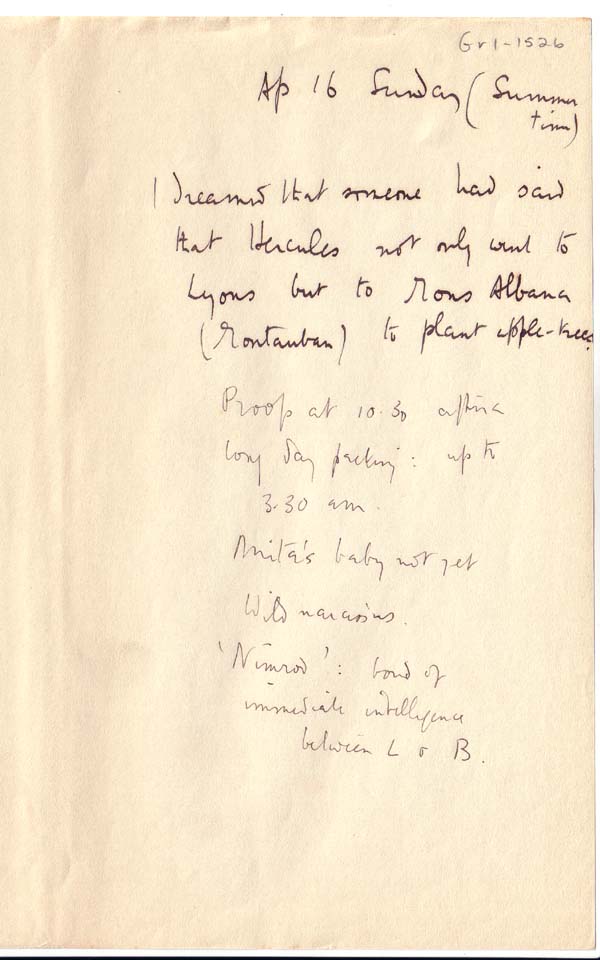 Gr1-1526
Ap 16 Sunday (Summer
time)
I dreamed that someone had said
that Hercules not only went to
Lyons but to Mons Albana
(Montauban) to plant apple-trees
Proofs at 10.30 after a
long day packing: up to
3.30 am.
Anita's baby not yet
Wild narcissus.
'Nimrod': bond of
immediate intelligence
between L & B.